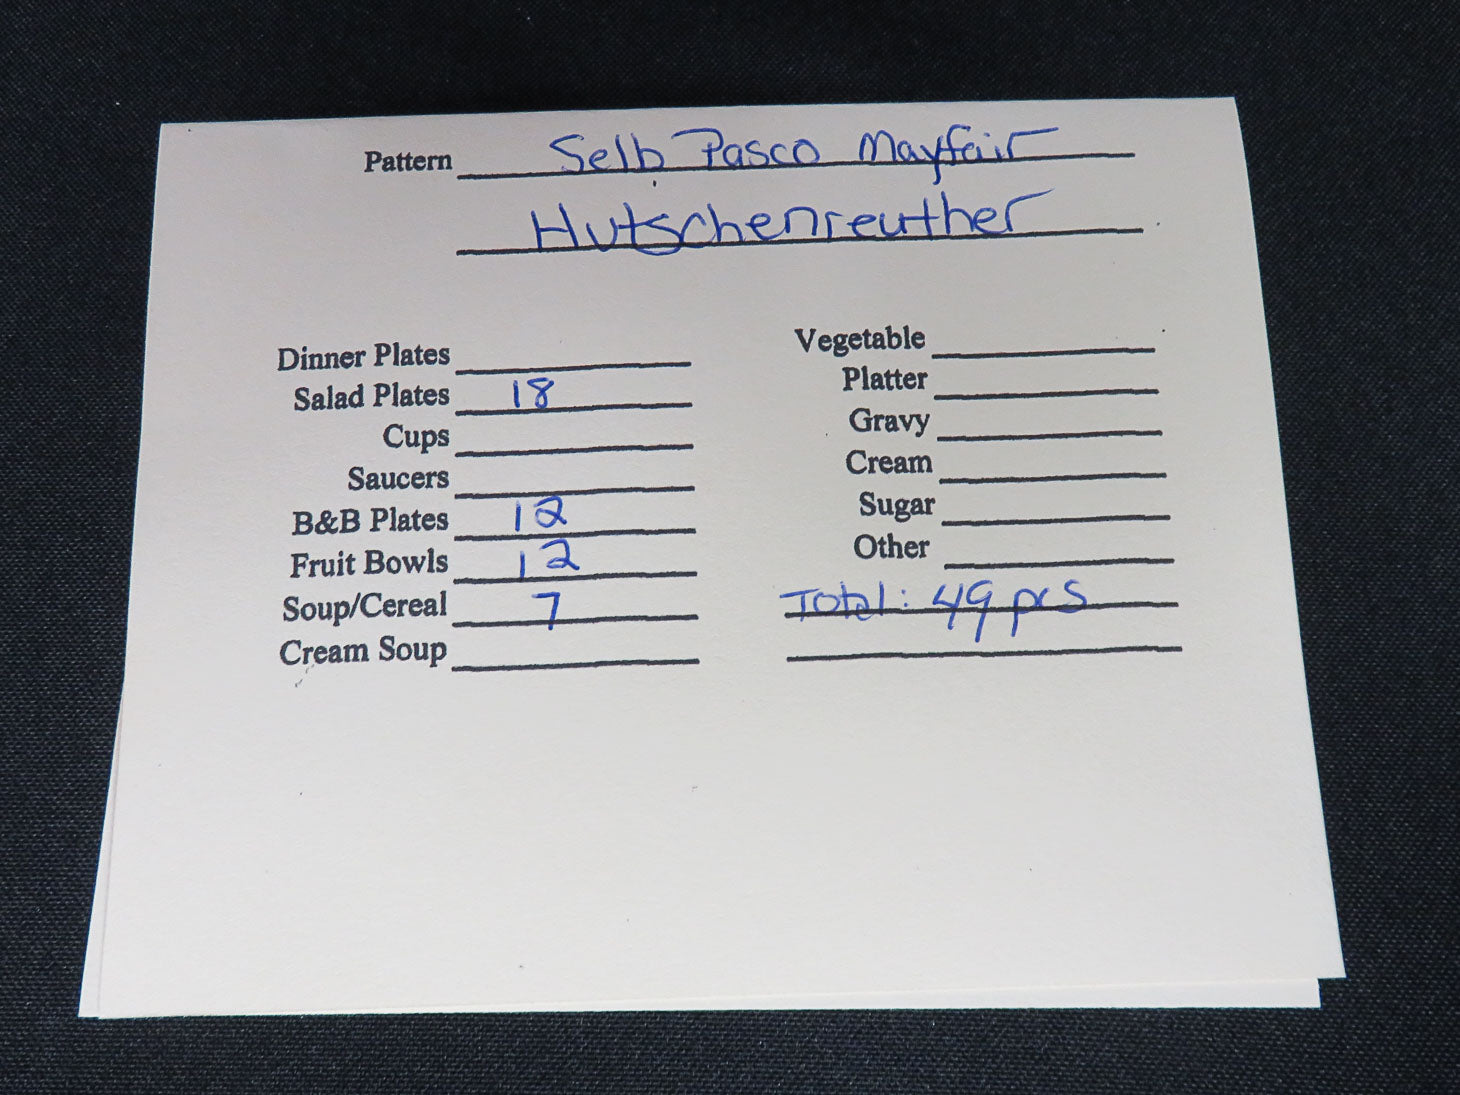 Pattern Selb Pasco Mayfair
Hutschenreuther
Dinner Plates
Salad Plates 18
Cups
Saucers
B&B Plates 12
Fruit Bowls 12
Soup/Cereal 7
Cream Soup
Vegetable
Platter
Gravy
Cream
Sugar
Other
Total: 49 pcs